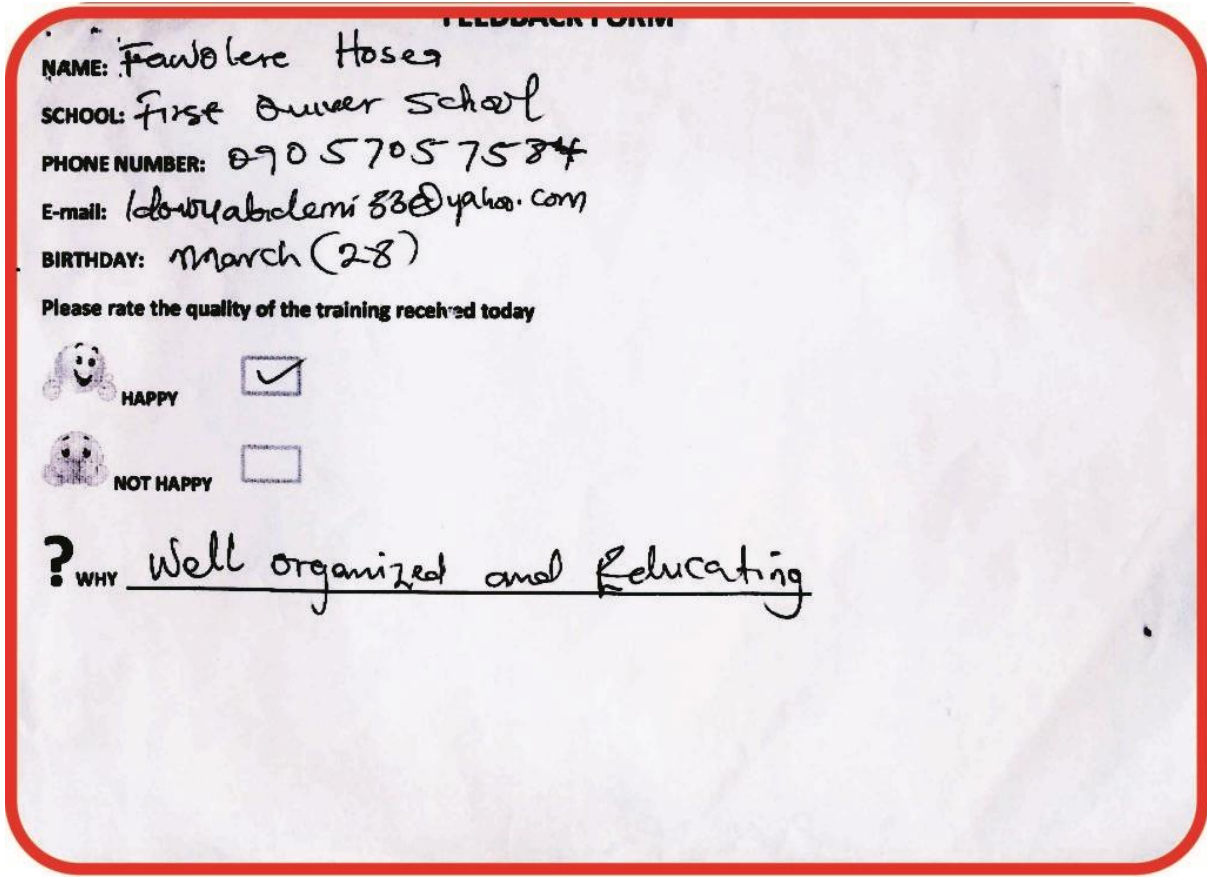 FEEDBACK FORM
NAME: Fawolere Hosea
SCHOOL: First School
PHONE NUMBER: 09057057584
E-mail:
BIRTHDAY: March (28)
Please rate the quality of the training received today
HAPPY
NOT HAPPY
? WHY Well organized and Educating